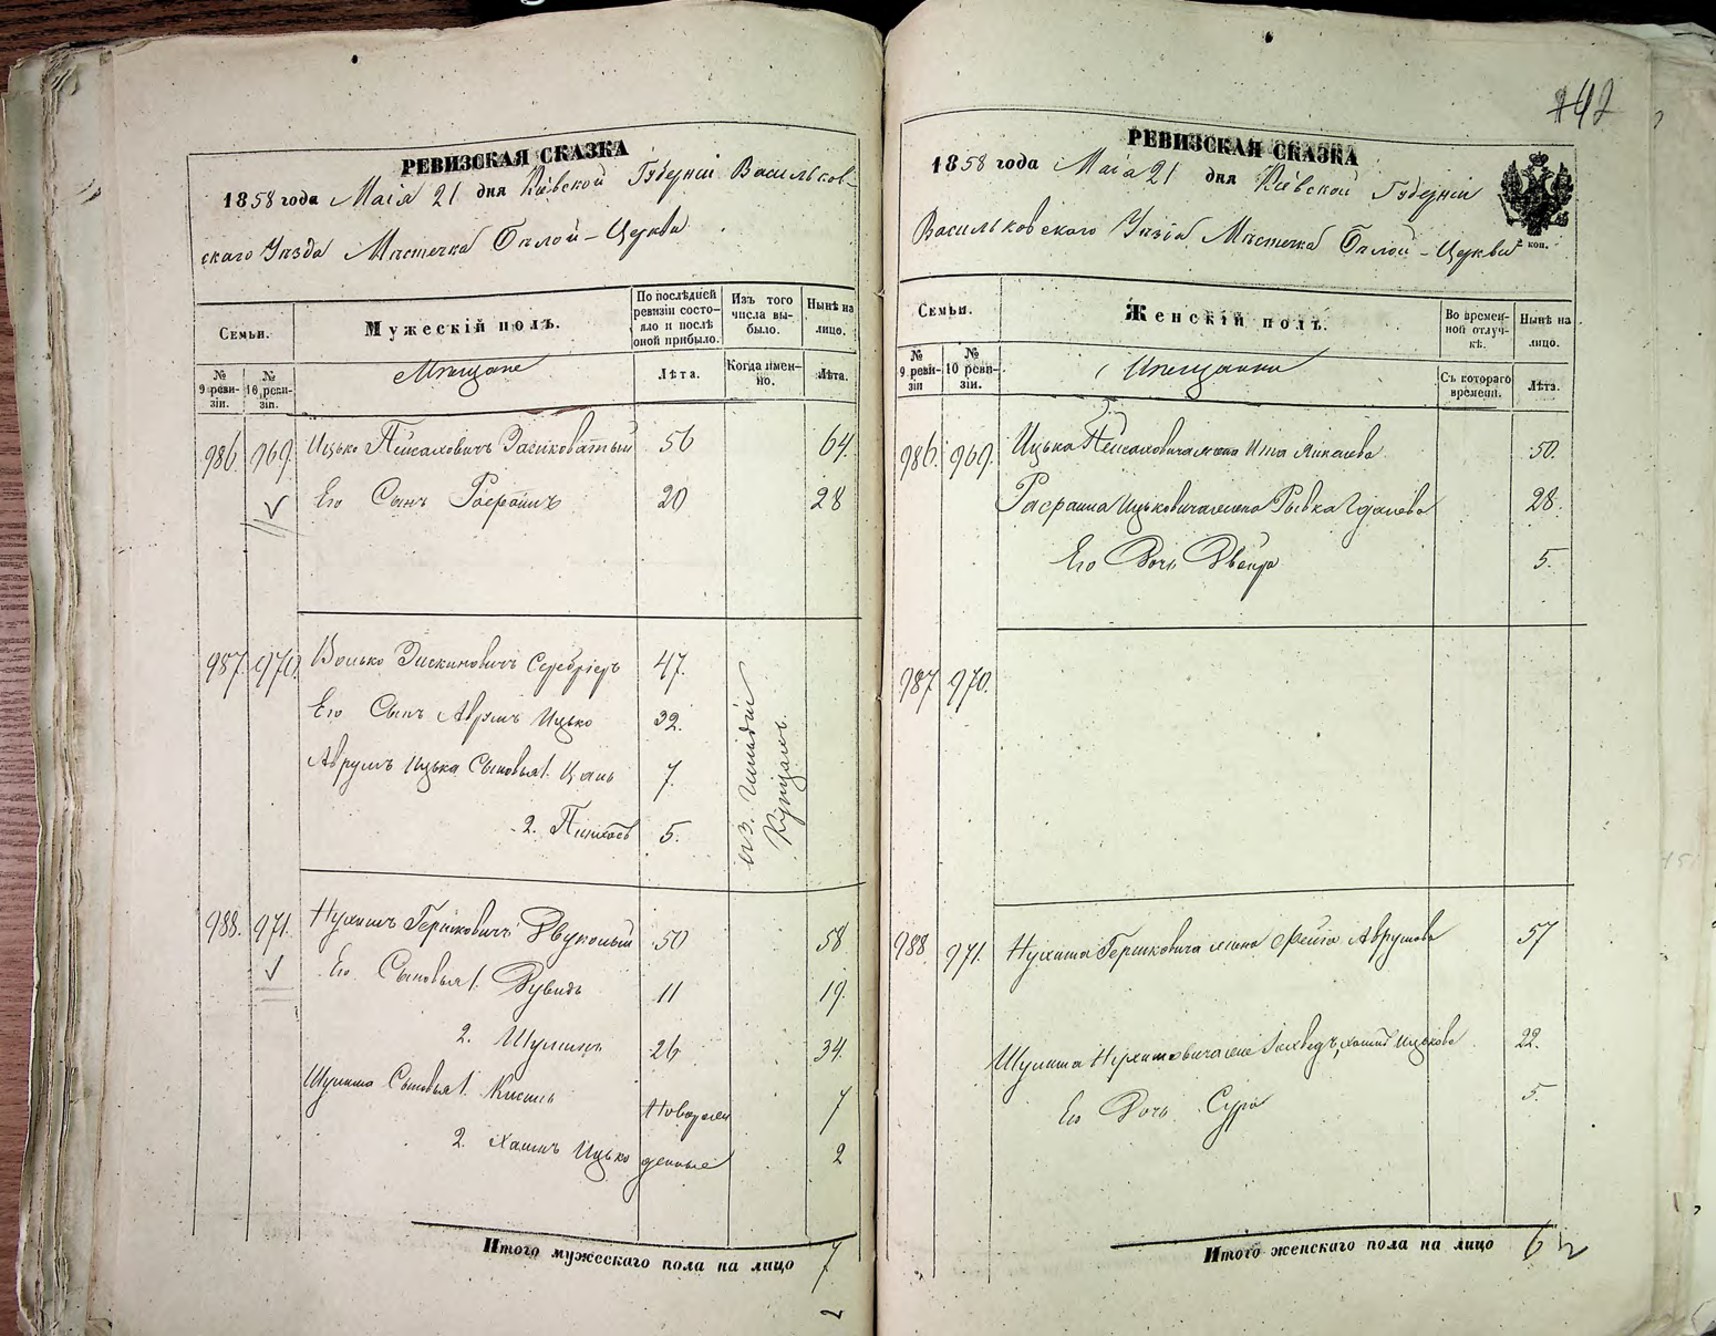 РЕВИЗСКАЯ СКАЗКА
1858 года Маія 21 дня Кіевской Губерніи Васильков-
скаго Уѣзда Мѣстечка Бѣлой-Церкви
Семьи.
Мужескій полъ.
По послѣдней ревизіи состояло и послѣ оной прибыло.
Изъ того числа выбыло.
Нынѣ на лицо.
№ 9 ревизіи.
№ 10 ревизіи.
Мѣщане
Лѣта.
Когда именно.
Лѣта.
986. 969. Ицько Пейсаховичъ 56 64.
Его Сынъ 20 28
987. 970. 47.
Его Сынъ Аврумъ Ицько 32.
Аврумъ Ицька Сыновья 1. 7.
2. Пинхасъ 5.
Купцамъ.
988. 971. Нухимъ Гершковичъ 50 58
Его Сыновья 1. Дувидъ 11 19.
2. Шулимъ 26 34.
Шулима Сыновья 1. Новорож 7
2. Хаимъ Ицько денные 2
Итого мужескаго пола на лицо 7
142
РЕВИЗСКАЯ СКАЗКА
1858 года Маія 21 дня Кіевской Губерніи
Васильковскаго Уѣзда Мѣстечка Бѣлой-Церкви
коп.
Семьи.
Женскій полъ.
Во временной отлучкѣ.
Нынѣ на лицо.
№ 9 ревизіи
№ 10 ревизіи.
Мѣщанки
Съ котораго времени.
Лѣта.
986. 969. Ицька Пейсаховича жена Ита 50.
Ицьковича жена Рывка 28.
Его Дочь Двейра 5.
987 970.
988 971. Нухима Гершковича жена Фейга Аврумова 57
Шулима Нухимовича жена Ицькова 22.
Его Дочь Сура 5.
Итого женскаго пола на лицо 6